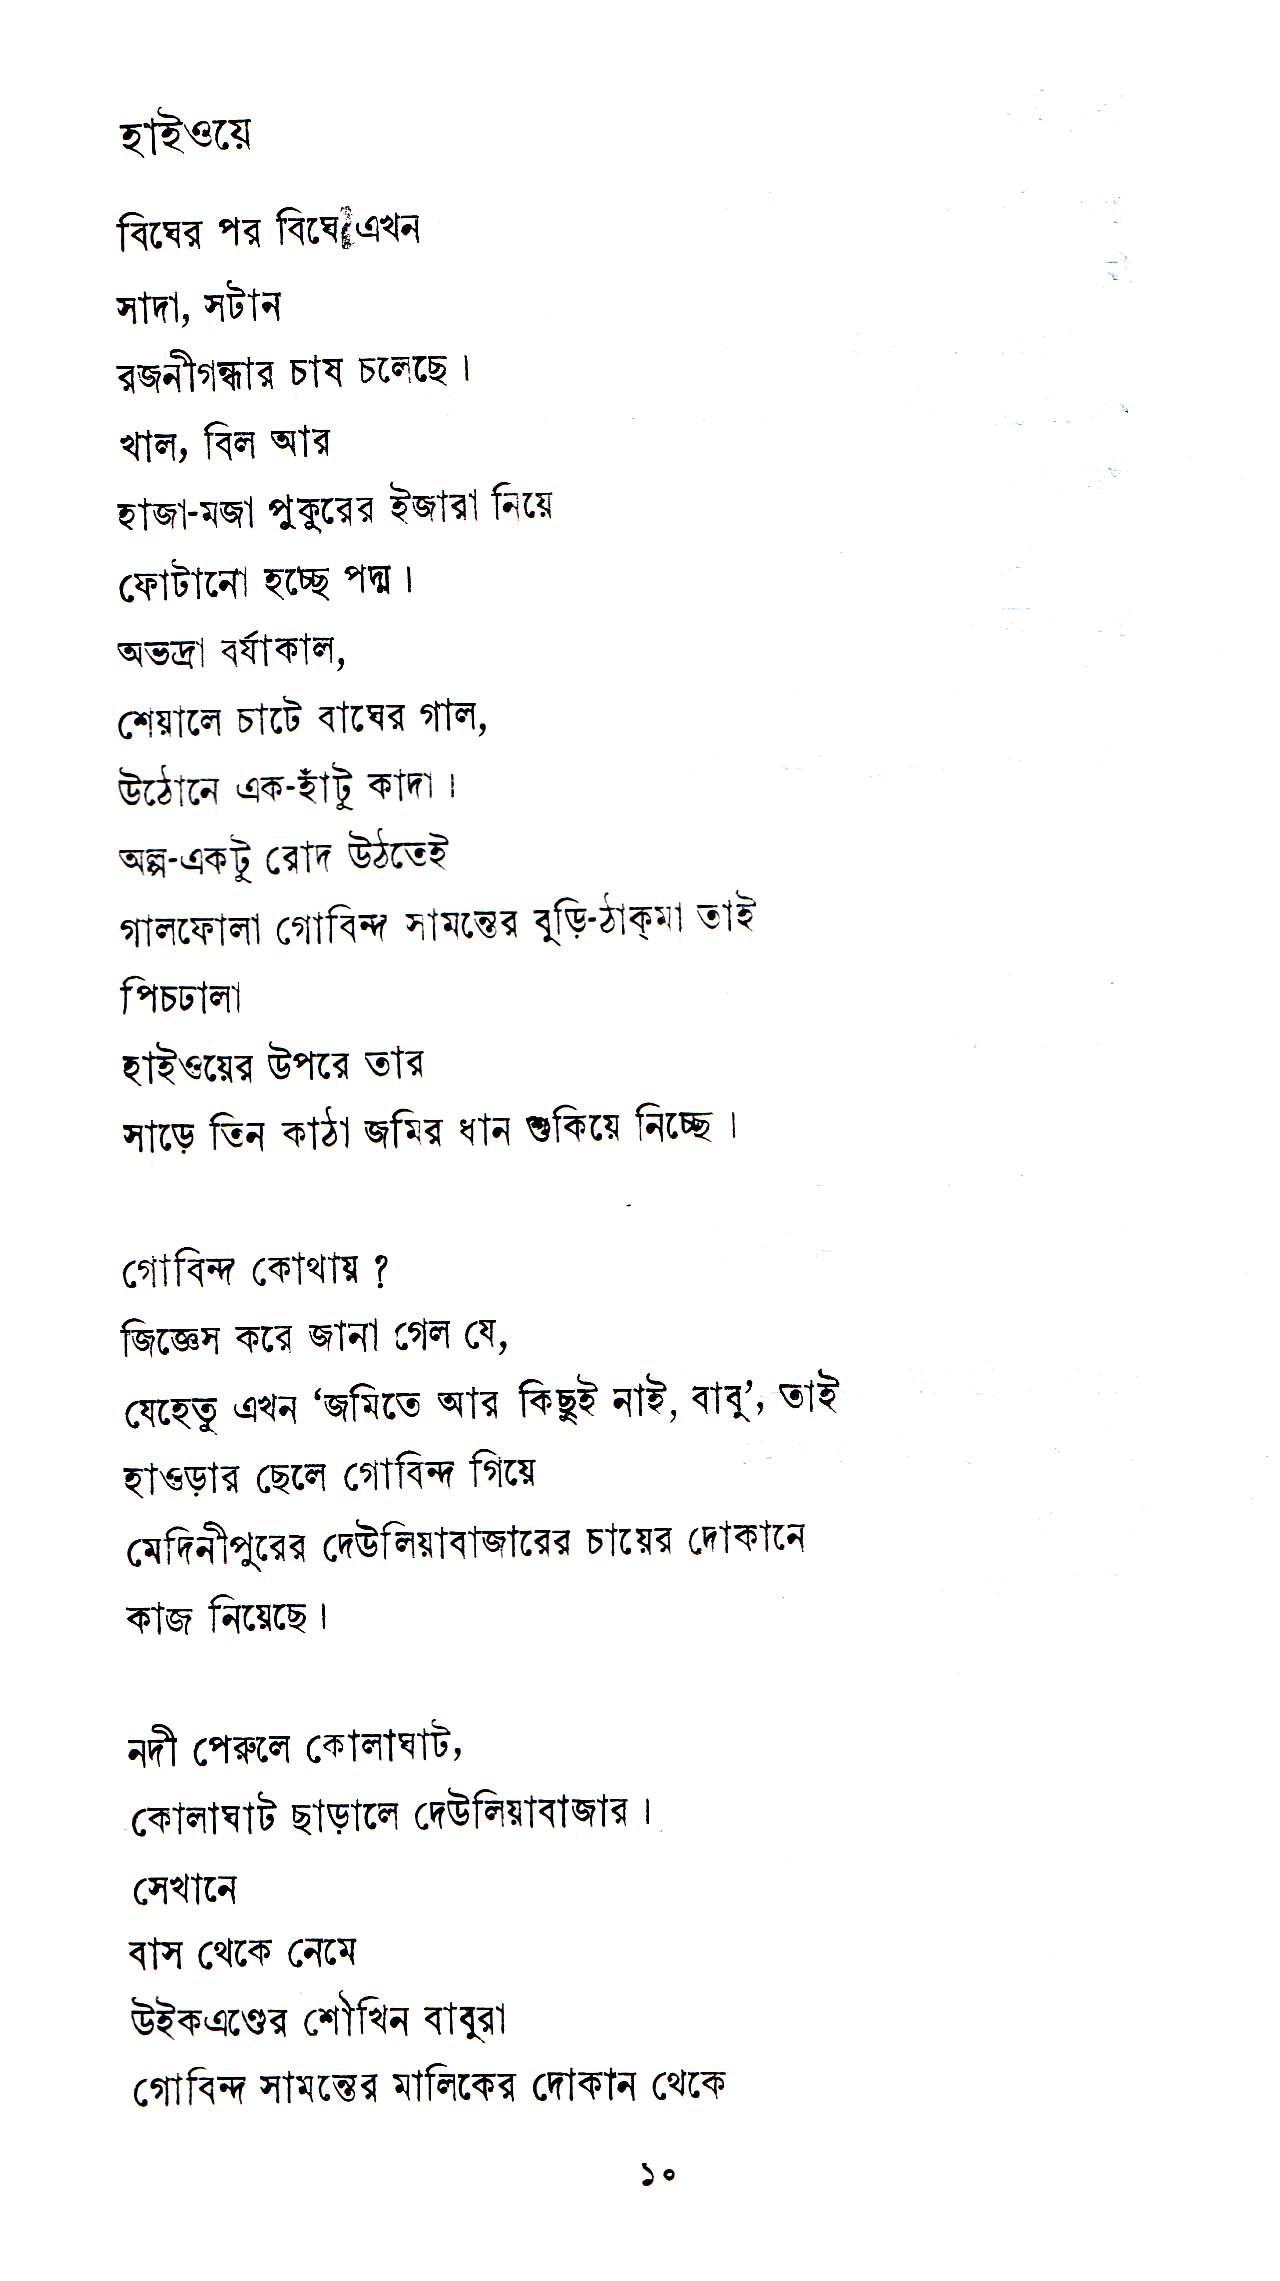 হাইওয়ে
বিঘের পর বিঘে এখন
সাদা, সটান
রজনীগন্ধার চাষ চলেছে।
খাল, বিল আর
হাজা-মজা পুকুরের ইজারা নিয়ে
ফোটানো হচ্ছে পদ্ম।
অভদ্রা বর্ষাকাল,
শেয়ালে চাটে বাঘের গাল,
উঠোনে এক-হাঁটু কাদা।
অল্প-একটু রোদ উঠতেই
গালফোলা গোবিন্দ সামন্তের বুড়ি-ঠাক্‌মা তাই
পিচঢালা
হাইওয়ের উপরে তার
সাড়ে তিন কাঠা জমির ধান শুকিয়ে নিচ্ছে।
গোবিন্দ কোথায় ?
জিজ্ঞেস করে জানা গেল যে,
যেহেতু এখন ‘জমিতে আর কিছুই নাই, বাবু’, তাই
হাওড়ার ছেলে গোবিন্দ গিয়ে
মেদিনীপুরের দেউলিয়াবাজারের চায়ের দোকানে
কাজ নিয়েছে।
নদী পেরুলে কোলাঘাট,
কোলাঘাট ছাড়ালে দেউলিয়াবাজার।
সেখানে
বাস থেকে নেমে
উইকএণ্ডের শৌখিন বাবুরা
গোবিন্দ সামন্তের মালিকের দোকান থেকে
১০